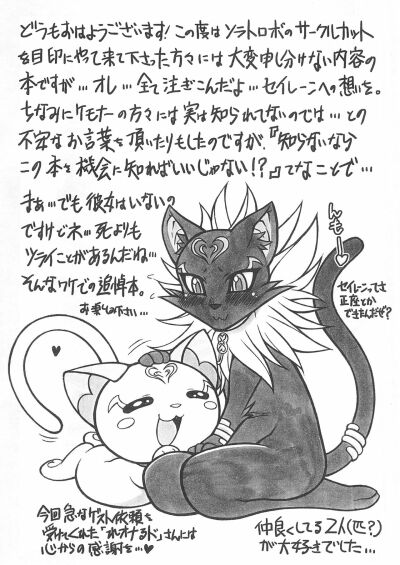 どうもおはようございます!この度はソラトロボのサークルカット
を目印にやって来て下さった方々には大変申し分けない内容の
本ですが…オレ…全て注ぎこんだよ…セイレーンへの想いを。
ちなみにケモナーの方々には実は知られてないのでは…との
不安なお言葉を頂いたりもしたのですが、『知らないなら
この本を機会に知ればいいじゃない!?』てなことで…
まぁ…でも彼女はいないの
ですけどネ…死よりも
ツライことがあるんだね…
そんなワケでの追悼本。
お楽しみ下さい…
んもー
セイレーンってさ
正座とか
できたんだぜ?
今回急なゲスト依頼を
受けてくれた「れオナるド」さんには
心からの感謝を…♥
仲良くしてる2人(匹?)
が大好きでした…